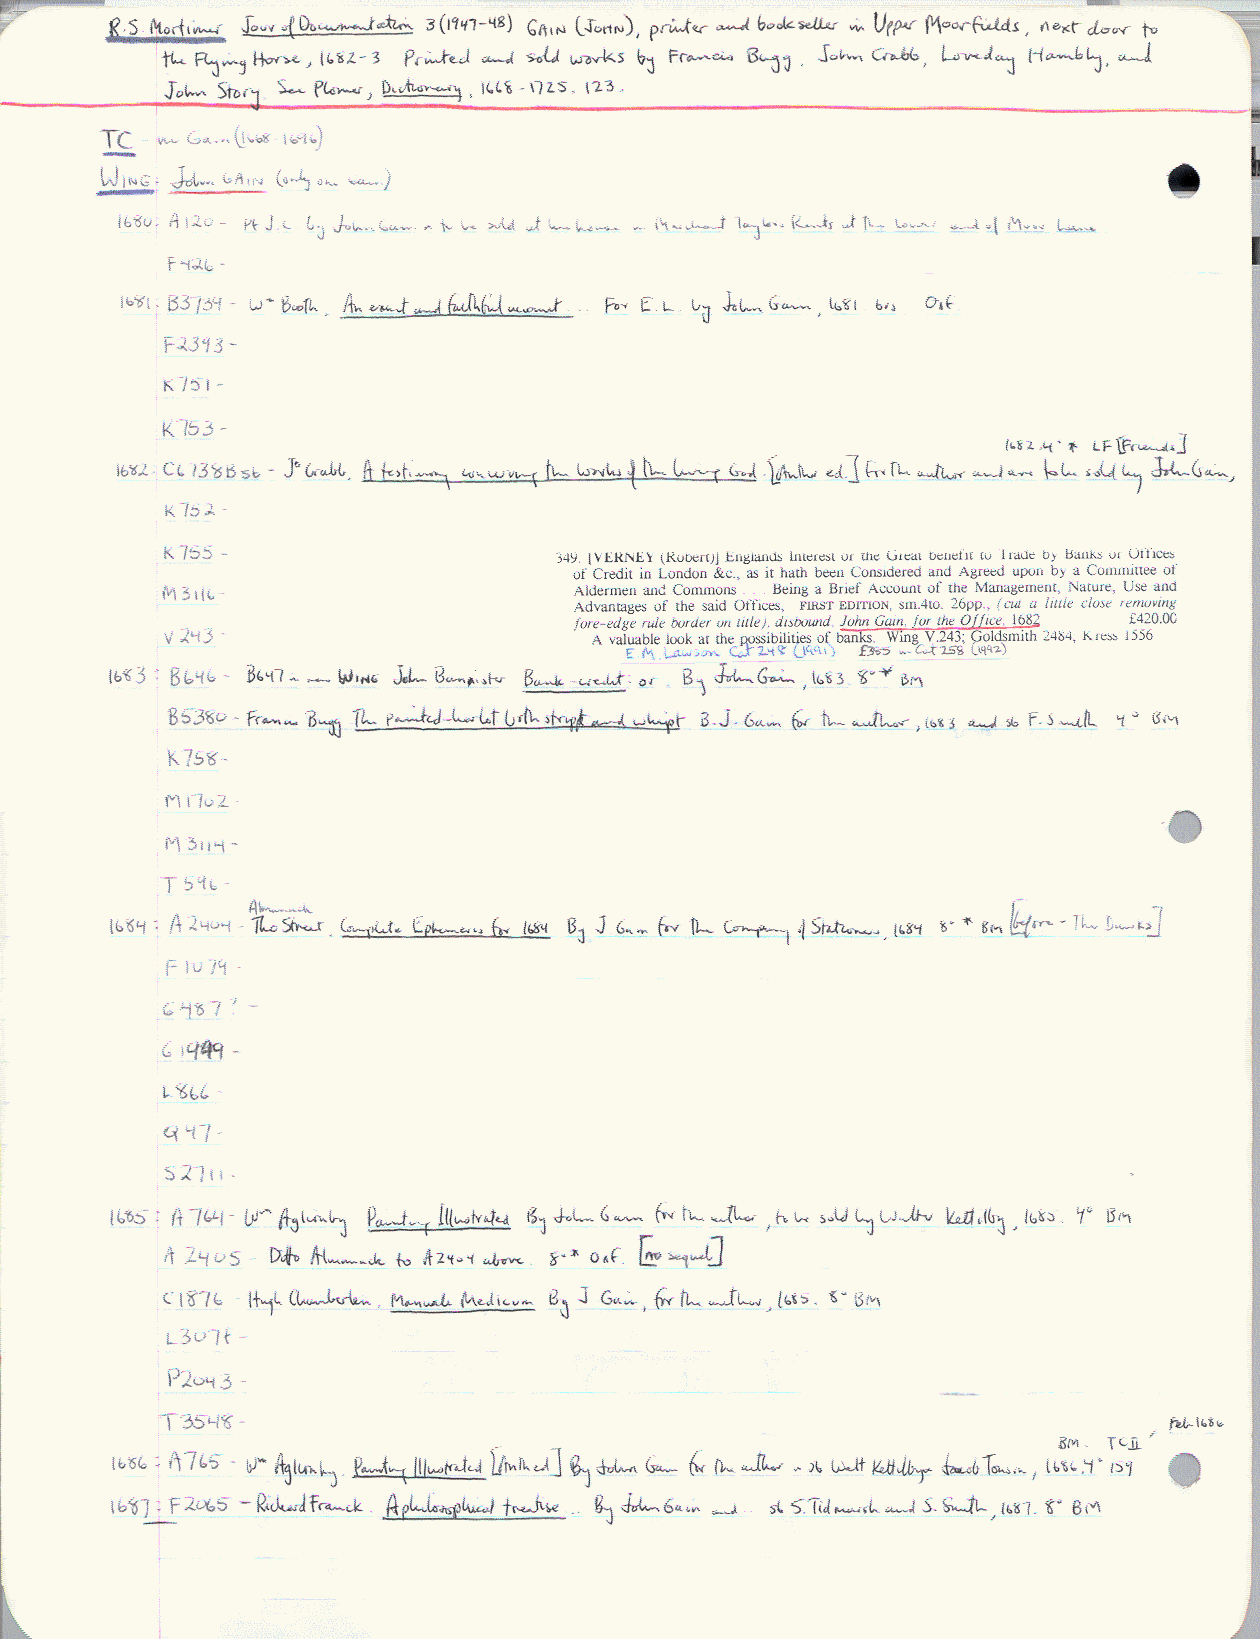 R.S. Mortimer Jour of Documentation 3 (1947-48) GAIN (JOHN), printer and bookseller in Upper Moorfields, next door to
the Flying Horse, 1682-3 Printed and sold works by Francis Bugg, John Crabb, Loveday Hambly, and
John Story. See Plomer, Dictionary, 1668-1725. 123.
TC - no Gain (1668-1696)
WING: John GAIN (only one Gain)
1680: A120 - Pt J.C by John Gain to be sold at his house in Merchant Taylors Rents at the Lower end of Moor Lane
F426 -
1681: B3734 - Wm Booth, An exact and faithful account ... For E.L. by John Gain, 1681 brs Oxf
F2393 -
K751 -
K753 -
1682. 4° * LF [Friends]
1682: C6738B sb - Jn Crabb, A testimony concerning the works of the living God. [Another ed.] For the author and are to be sold by John Gain,
K752 -
K755 -
349. [VERNEY (Robert)] Englands Interest or the Great benefit to Trade by Banks or Offices
of Credit in London &c., as it hath been Considered and Agreed upon by a Committee of
Aldermen and Commons . . . Being a Brief Account of the Management, Nature, Use and
M3116 -
Advantages of the said Offices, FIRST EDITION, sm.4to. 26pp., (cut a little close removing
fore-edge rule border on title), disbound. John Gain, for the Office, 1682 £420.00
V243 -
A valuable look at the possibilities of banks. Wing V.243; Goldsmith 2484, Kress 1556
E.M. Lawson Cat 248 (1991) £385 in Cat 258 (1992)
1683: B646 - B647 in new WING John Bannister Bank-credit: or. By John Gain, 1683. 8° * BM
B5380 - Francis Bugg The painted-harlot both stript and whipt B. J. Gain for the author, 1683 and sb F. Smith 4° BM
K758 -
M1702 -
M3114 -
T596 -
Almanack
1684: A2404 - Tho Street. Complete Ephemeris for 1684 By J Gain for the Company of Stationers, 1684 8° * BM [before - Tho Dawks]
F1079 -
G487? -
G1949 -
L866 -
Q47 -
S2711 -
1685: A764 - Wm Aglionby Painting Illustrated By John Gain for the author, to be sold by Walter Kettilby, 1685. 4° BM
A2405 - Ditto Almanack to A2404 above. 8° * Oxf. [no sequel]
C1876 - Hugh Chamberlen, Manuale Medicum By J Gain, for the author, 1685. 8° BM
L307t -
P2043 -
T3548 -
Feb. 1686
BM. TC II
1686: A765 - Wm Aglionby. Painting Illustrated [Another ed] By John Gain for the author sb Walt Kettilby Jacob Tonson, 1686. 4° 159
1687: F2065 - Richard Franck. A philosophical treatise ... By John Gain and .. sb S. Tidmarsh and S. Smith, 1687. 8° BM